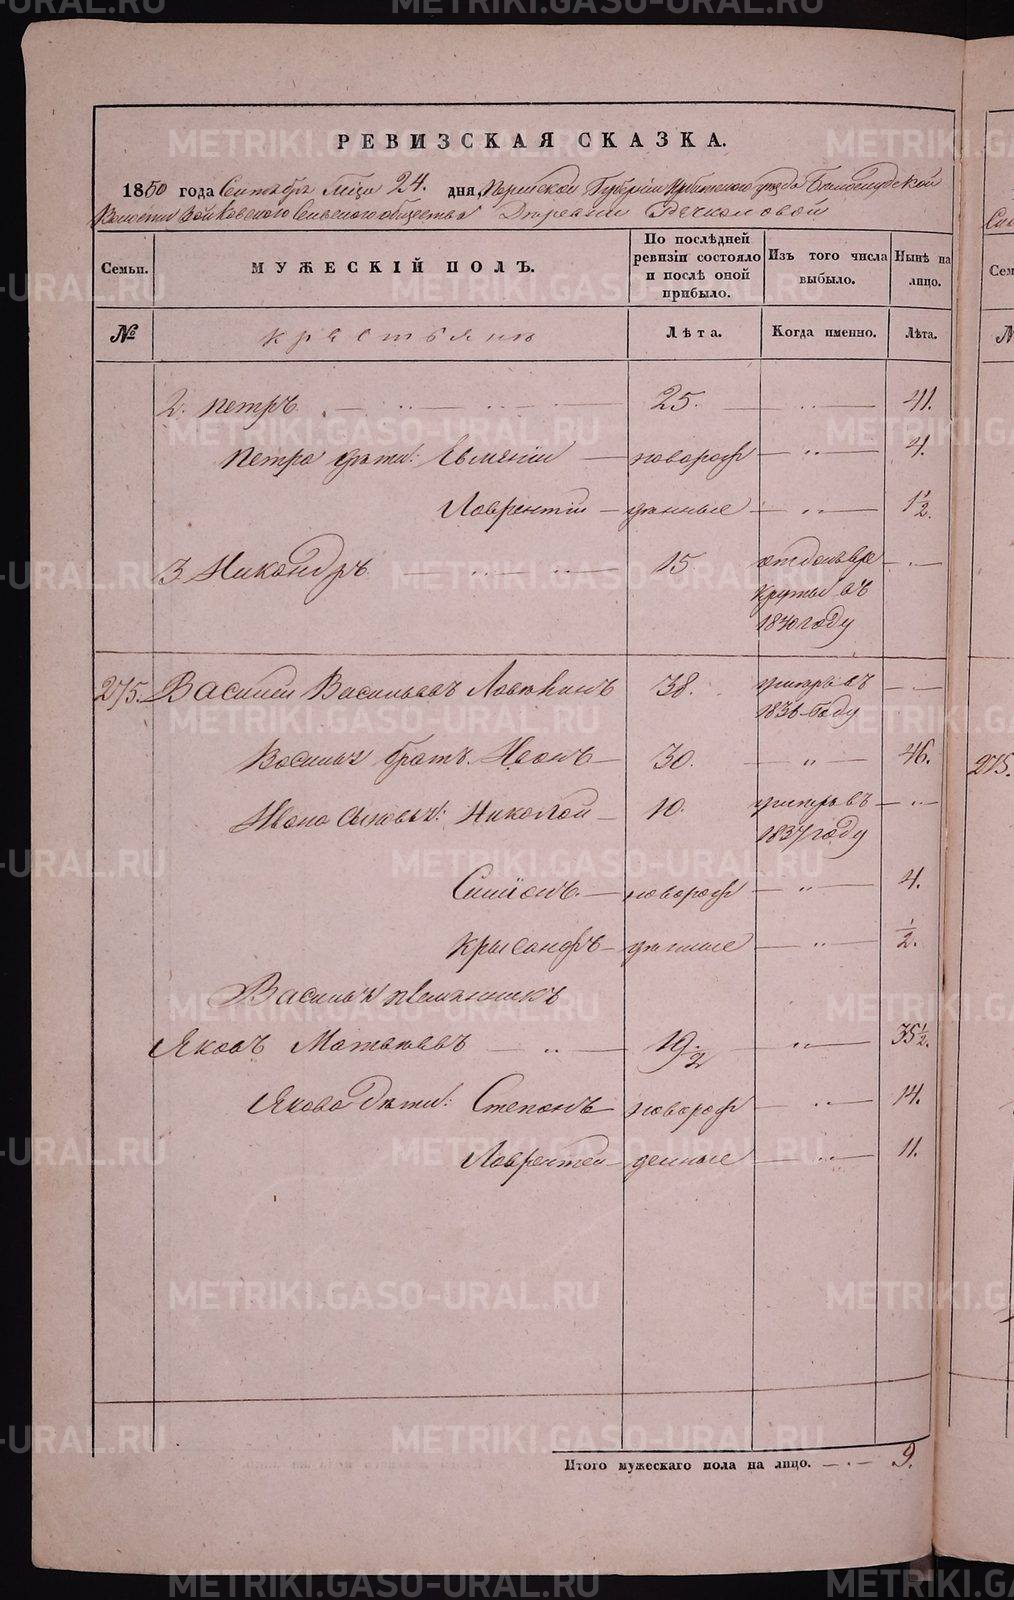 РЕВИЗСКАЯ СКАЗКА.
1850 года Сентября м҃ца 24. дня, Пермской Губернии Ирбитскаго уезда
Волости Сельскаго общества Деревни Речкаловой
Семьи. МУЖЕСКІЙ ПОЛЪ. По послѣдней ревизіи состояло и послѣ оной прибыло. Изъ того числа выбыло. Нынѣ на лицо.
№ крестьяне Лѣта. Когда именно. Лѣта.
2. Петръ 25. 41.
Петра дѣти: Евмений новорож 4.
Лаврентiй денные 1 1/2.
3 Никандръ 15 отдан в рекруты въ 1840 году
275. Василей Васильевъ 38. умеръ въ 1836 году
Васильа братъ Иванъ 30. 46.
Ивана сыновья: Николай 10. умеръ въ 1837 году
Симионъ новорож 4.
Крысанфъ денные 1/2.
Васильа племянникъ
Яковъ Матвеевъ 19 1/2 35 1/2.
Якова дѣти: Степанъ новорож 14.
Лаврентей денные 11.
Итого мужескаго пола на лицо. 9.
275.
METRIKI.GASO-URAL.RU